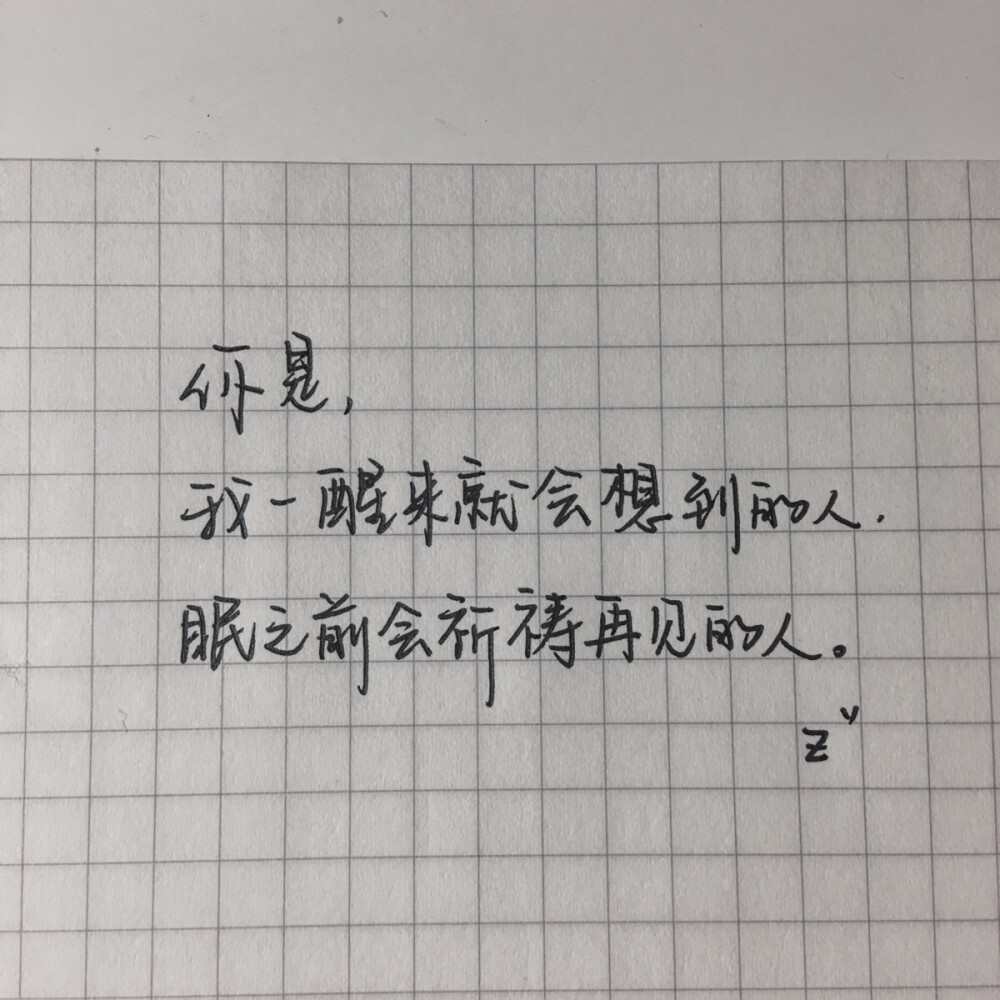 你是,
我一醒来就会想到的人.
眠之前会祈祷再见的人。
zy